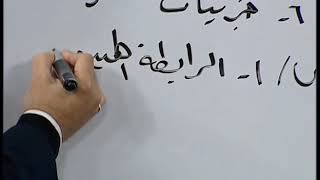 ٦- جزيئات
س/ ١- الرابطة الهيـ